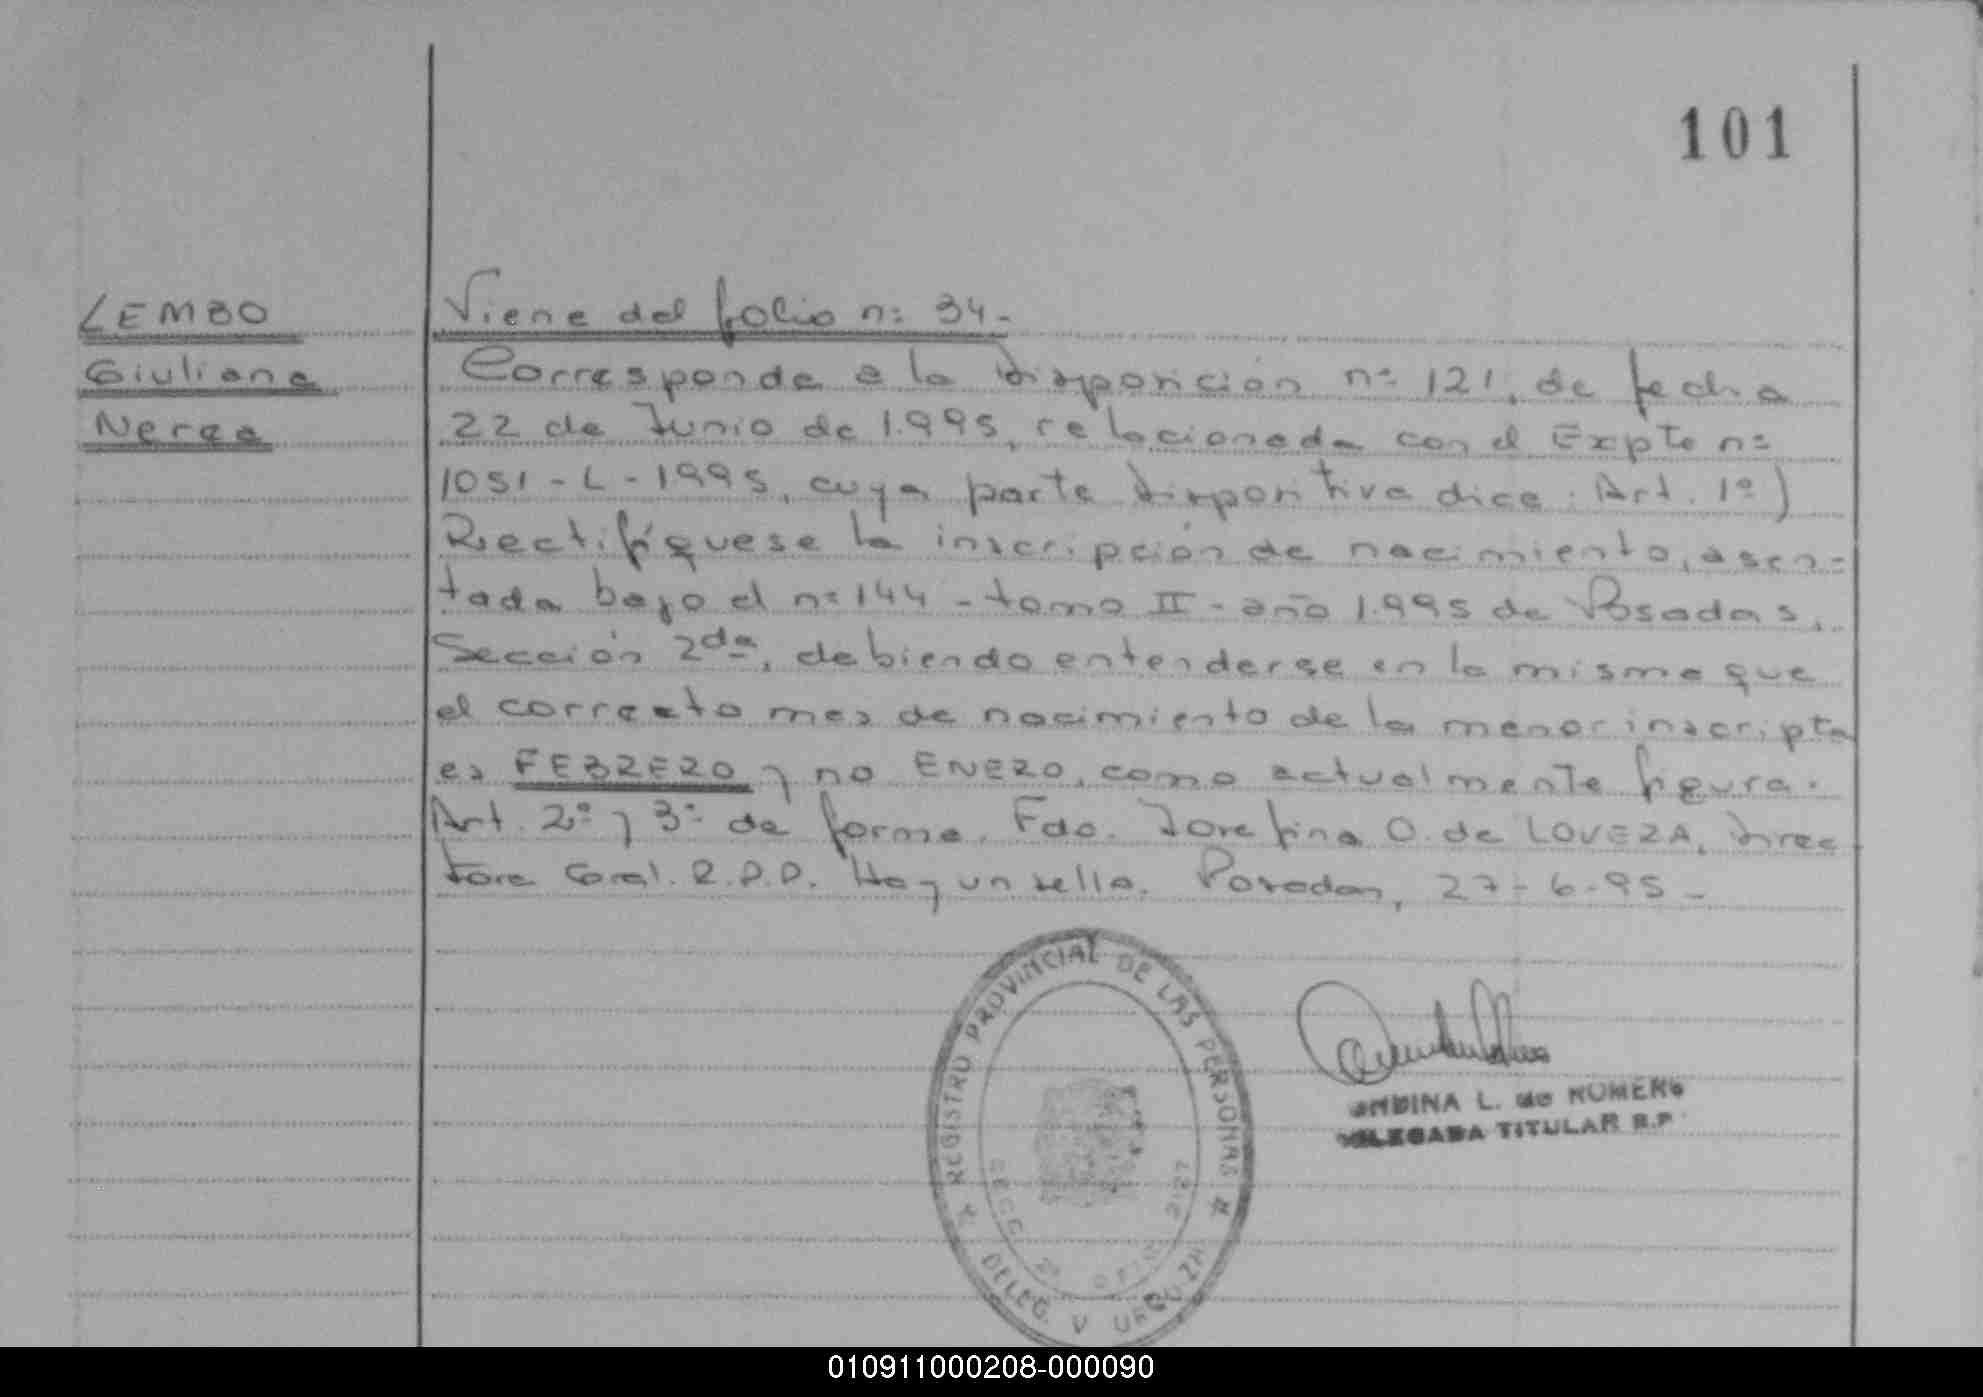 101
LEMBO
Giuliana
Nerea
Viene del folio n: 34.-
Corresponde a la Disposición nº 121, de fecha
22 de Junio de 1.995, relacionada con el Expte nº
1051-L-1995, cuya parte dispositiva dice: Art. 1º)
Rectifíquese la inscripción de nacimiento, asen=
tada bajo el nº 144 - tomo II - año 1.995 de Posadas,
Sección 2da, debiendo entenderse en la misma que
el correcto mes de nacimiento de la menor inscripta
es FEBRERO y no ENERO, como actualmente figura.
Art. 2º y 3º de forma. Fdo. Josefina O. de LOVERA, Direc
tora Gral. R.P.P. Hay un sello. Posadas, 27-6-95-
REGISTRO PROVINCIAL DE LAS PERSONAS
DELEG. V URQUIZA
L. de ROMERO
DELEGADA TITULAR R.P
010911000208-000090